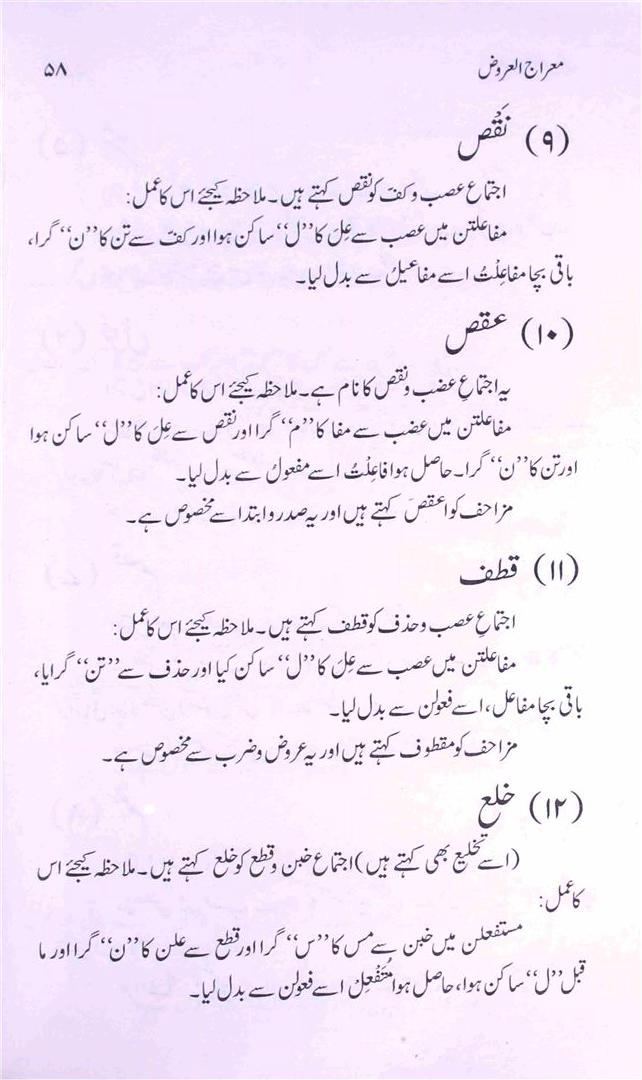 معراج العروض ۵۸
(۹) نَقْص
اجتماع عصب و کف کو نقص کہتے ہیں۔ ملاحظہ کیجئے اس کا عمل:
مفاعلتن میں عصب سے عِلَ کا ”ل“ ساکن ہوا اور کف سے تن کا ”ن“ گرا،
باقی بچا مفاعِلْتُ اسے مفاعیلُ سے بدل لیا۔
(۱۰) عقص
یہ اجتماعِ عضب و نقص کا نام ہے۔ ملاحظہ کیجئے اس کا عمل:
مفاعلتن میں عضب سے مفا کا ”م“ گرا اور نقص سے عِلَ کا ”ل“ ساکن ہوا
اور تن کا ”ن“ گرا۔ حاصل ہوا فاعِلْتُ اسے مفعولُ سے بدل لیا۔
مزاحف کو اعقص کہتے ہیں اور یہ صدر و ابتدا سے مخصوص ہے۔
(۱۱) قطف
اجتماعِ عصب و حذف کو قطف کہتے ہیں۔ ملاحظہ کیجئے اس کا عمل:
مفاعلتن میں عصب سے عِلَ کا ”ل“ ساکن کیا اور حذف سے ”تن“ گرایا،
باقی بچا مفاعل، اسے فعولن سے بدل لیا۔
مزاحف کو مقطوف کہتے ہیں اور یہ عروض و ضرب سے مخصوص ہے۔
(۱۲) خلع
(اسے تخلیع بھی کہتے ہیں) اجتماع خبن و قطع کو خلع کہتے ہیں۔ ملاحظہ کیجئے اس
کا عمل:
مستفعلن میں خبن سے مس کا ”س“ گرا اور قطع سے علن کا ”ن“ گرا اور ما
قبل ”ل“ ساکن ہوا، حاصل ہوا مُتَفْعِلْ اسے فعولن سے بدل لیا۔